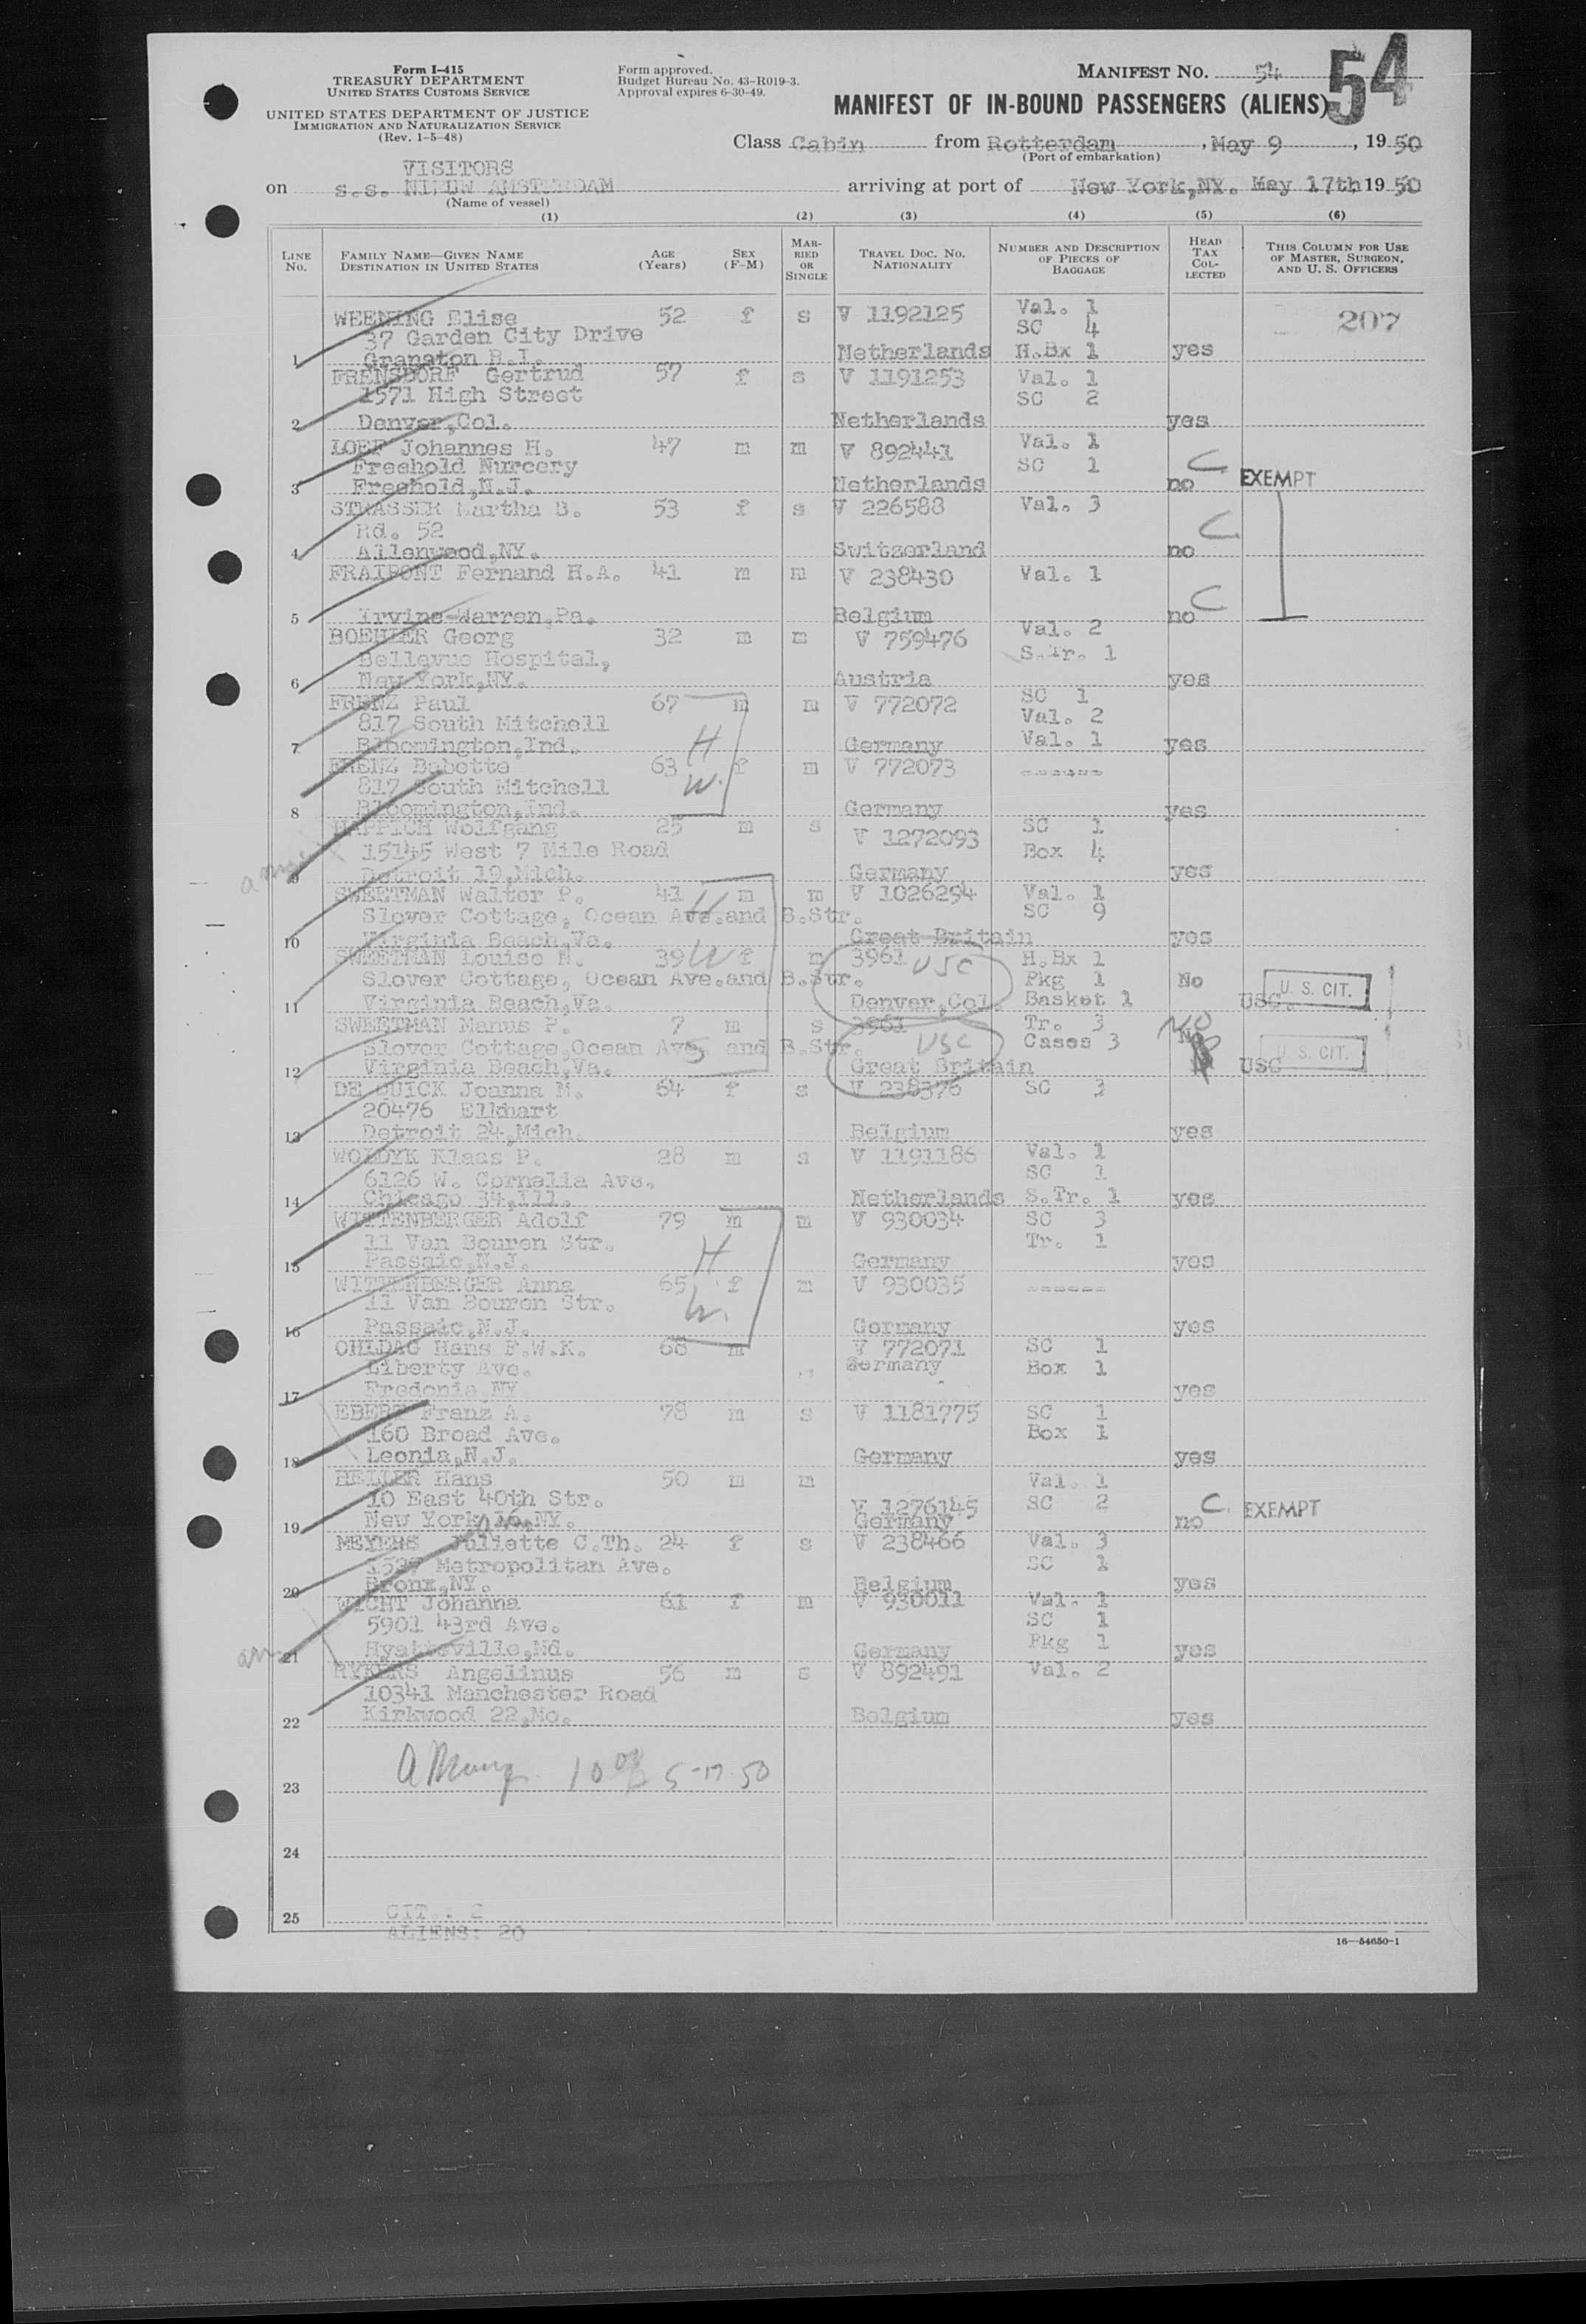 Form I-415
TREASURY DEPARTMENT
UNITED STATES CUSTOMS SERVICE
UNITED STATES DEPARTMENT OF JUSTICE
IMMIGRATION AND NATURALIZATION SERVICE
(Rev. 1-5-48)
Form approved.
Budget Bureau No. 43-R019-3.
Approval expires 6-30-49.
MANIFEST NO. 54
54
MANIFEST OF IN-BOUND PASSENGERS (ALIENS)
Class Cabin from Rotterdam, May 9, 1950
(Port of embarkation)
VISITORS
on s.s. NIEUW AMSTERDAM arriving at port of New York, NY. May 17th 1950
(Name of vessel)
(1) (2) (3) (4) (5) (6)
LINE NO. FAMILY NAME—GIVEN NAME DESTINATION IN UNITED STATES AGE (Years) SEX (F-M) MARRIED OR SINGLE TRAVEL DOC. NO. NATIONALITY NUMBER AND DESCRIPTION OF PIECES OF BAGGAGE HEAD TAX COLLECTED THIS COLUMN FOR USE OF MASTER, SURGEON, AND U. S. OFFICERS
WEENING Elise 52 f s V 1192125 Val. 1 207
37 Garden City Drive SC 4
1 Granston R.I. Netherlands H.Bx 1 yes
FRENSDORF Gertrud 57 f s V 1191253 Val. 1
1571 High Street SC 2
2 Denver,Col. Netherlands yes
LOEF Johannes H. 47 m m V 892441 Val. 1
Freehold Nurcery SC 1 C
3 Freehold,N.J. Netherlands no EXEMPT
STRASSER Martha B. 53 f s V 226588 Val. 3
Rd. 52 C
4 Allenwood,NY. Switzerland no
FRAIPONT Fernand H.A. 41 m m V 238430 Val. 1
C
5 Irvine-Warren,Pa. Belgium no
BOEHLER Georg 32 m m V 759476 Val. 2
Bellevue Hospital, S.Tr. 1
6 New York,NY. Austria yes
FRENZ Paul 67 m m V 772072 SC 1
817 South Mitchell H Val. 2
7 Bloomington,Ind. Germany Val. 1 yes
FRENZ Babette 63 f m V 772073 ------
817 South Mitchell W.
8 Bloomington,Ind. Germany yes
HAPPICH Wolfgang 25 m s V 1272093 SC 1
15145 West 7 Mile Road Box 4
9 Detroit 19,Mich. Germany yes
SWEETMAN Walter P. 41 m m V 1026254 Val. 1
Slover Cottage, Ocean Ave.and B.Str. H SC 9
10 Virginia Beach,Va. Great Britain yes
SWEETMAN Louise N. 39 W f m 3961 USC H.Bx 1
Slover Cottage, Ocean Ave.and B.Str. Pkg 1 No
11 Virginia Beach,Va. Denver,Col. Basket 1 USC. U. S. CIT.
SWEETMAN Manus P. 7 m s 3961 Tr. 3 NO
Slover Cottage,Ocean Ave. and B.Str. S USC Cases 3 No U. S. CIT.
12 Virginia Beach,Va. Great Britain USC
DE QUICK Joanna M. 64 f s V 238376 SC 3
20476 Elkhart
13 Detroit 24,Mich. Belgium yes
WOLDYK Klaas P. 28 m s V 1191186 Val. 1
6126 W. Cornelia Ave. SC 1
14 Chicago 34,Ill. Netherlands S.Tr. 1 yes
WITTENBERGER Adolf 79 m m V 930034 SC 3
11 Van Bouren Str. H Tr. 1
15 Passaic,N.J. Germany yes
WITTENBERGER Anna 65 f m V 930035 ------
11 Van Bouren Str. W.
16 Passaic,N.J. Germany yes
OHLDAG Hans F.W.K. 68 m V 772071 SC 1
Liberty Ave. Germany Box 1
17 Fredonia NY yes
EBERT Franz A. 78 m s V 1181775 SC 1
160 Broad Ave. Box 1
18 Leonia,N.J. Germany yes
HELLER Hans 50 m m Val. 1
10 East 40th Str. V 1276145 SC 2 C.
19 New York 16,NY. Germany no EXEMPT
MEYERS Juliette C.Th. 24 f s V 238466 Val. 3
Metropolitan Ave. SC 1
20 Bronx,NY. Belgium yes
WICHT Johanna 61 f m V 930011 Val. 1
5901 43rd Ave. SC 1
21 Hyattsville,Md. Germany Pkg 1 yes
RYKERS Angelinus 56 m s V 892491 Val. 2
10341 Manchester Road
22 Kirkwood 22,Mo. Belgium yes
10 00 5-17-50
23
24
25 CIT.: 2
ALIENS: 20
16—54650-1